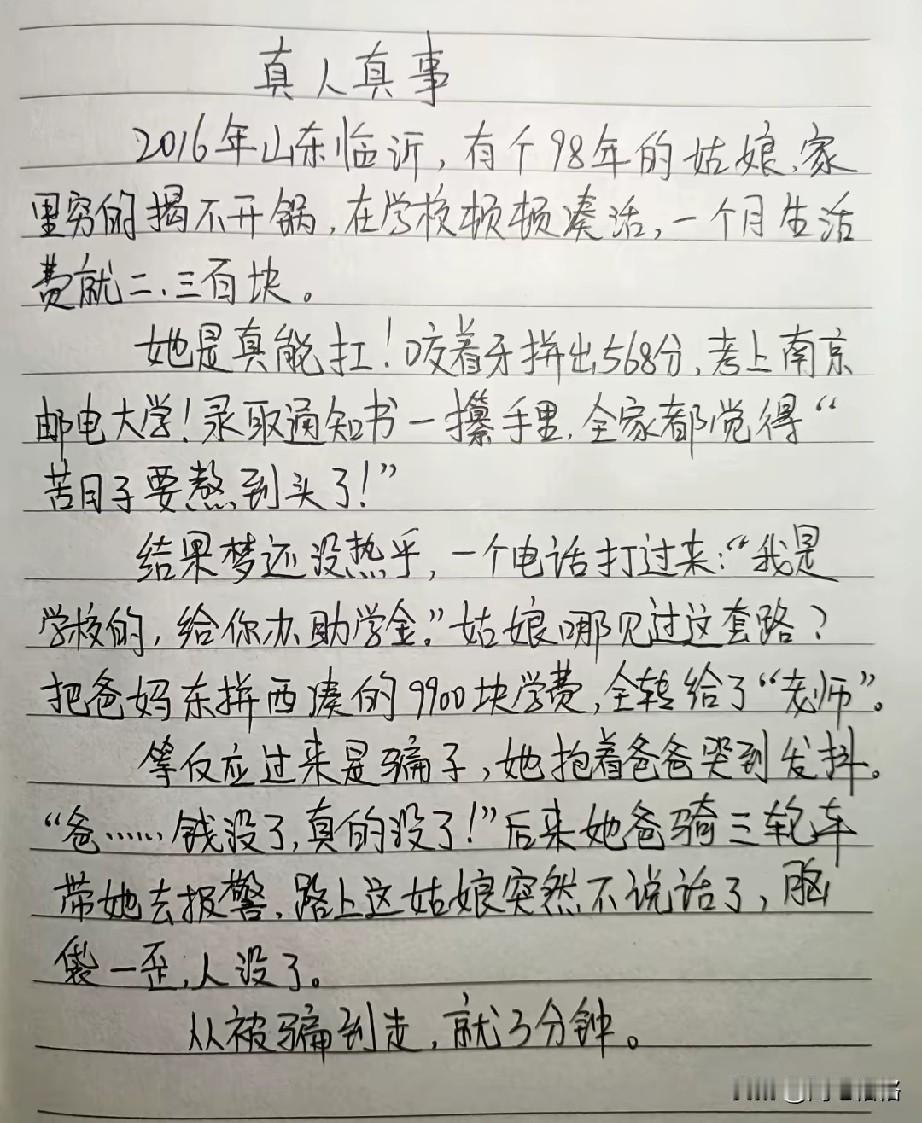 真人真事
2016年山东临沂,有个98年的姑娘、家
里穷的揭不开锅,在学校顿顿凑活,一个月生活
费就二、三百块。
她是真能扛!咬着牙拼出568分,考上南京
邮电大学!录取通知书一攥手里,全家都觉得“
苦日子要熬到头了!”
结果梦还没热乎,一个电话打过来:“我是
学校的,给你办助学金。”姑娘哪见过这套路?
把爸妈东拼西凑的9900块学费,全转给了“老师”。
等反应过来是骗子,她抱着爸爸哭到发抖。
“爸……钱没了,真的没了!”后来她爸骑三轮车
带她去报警,路上这姑娘突然不说话了,脑
袋一歪,人没了。
从被骗到走,就3分钟。